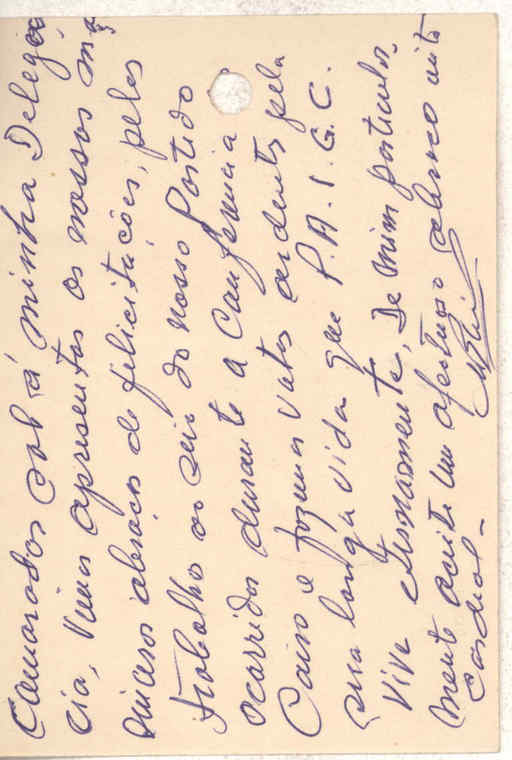 Camarados sob á minha Delegá
cia, vimos apresentar os nossos mq
sinceros abraços de felicitações, pelos
trabalho ao seio do nosso Partido
ocorridos durante a Conferencia
Cairo e fazemos votos ardentes pela
sua longa vida que P.A.I.G.C.
vive eternamente, De mim particular
mente aceite um afectuoso abraço mto
Cordeal-